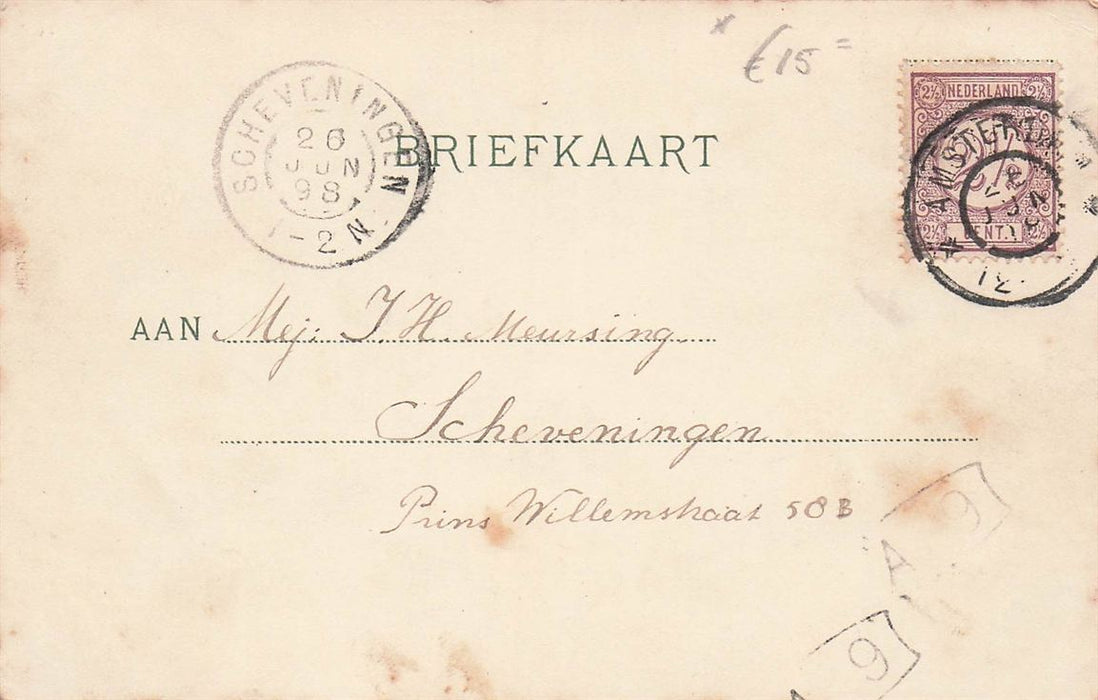 €15 =
2½ NEDERLAND 2½
2½ CENT. 2½
AMSTERDAM
SCHEVENINGEN
26
JUN
98
1-2 N.
BRIEFKAART
AAN Mej: J. H. Meursing.
Scheveningen
Prins Willemstraat 58 B
A 9
A 9